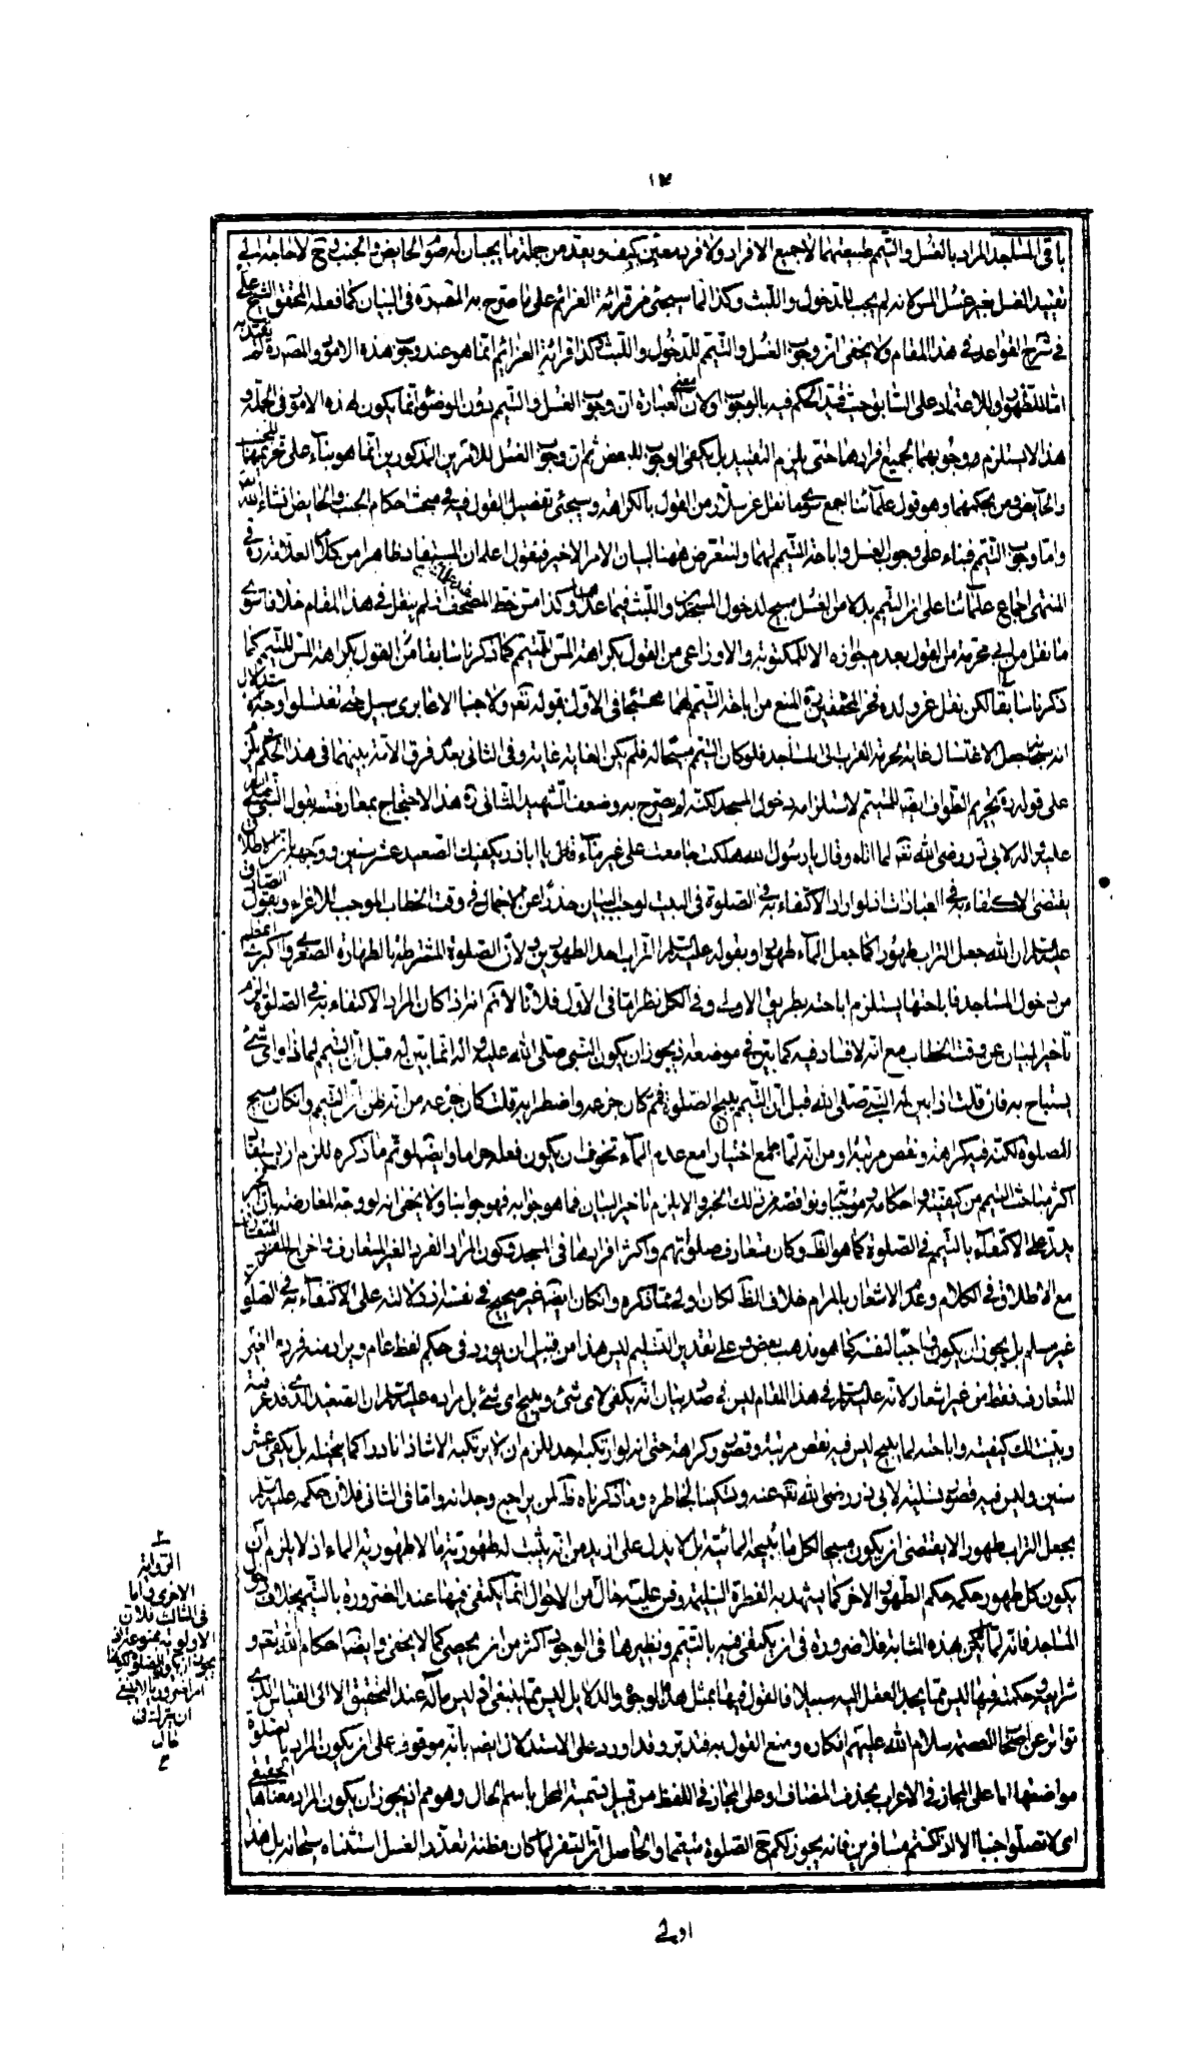 ١٣
باقى المساجد المراد بالغسل والتيمم طبيعتهما لا جميع الافراد ولا فرد معين كيف ويعتد من جملة ما يجبان له صوم الحايض والجنب فح لا حاجة الى
تقييد الغسل بغير غسل المس لانه لم يجب للدخول واللبث وكذا فيما سيجئ من قرائة العزائم على ما صرح به المصنف ره فى البيان كما فعله المحقق الشيخ على
فى شرح القواعد فى هذا المقام ولا يخفى ان وجوب الغسل والتيمم للدخول واللبث وكذا قرائة العزائم انما هو عند وجوب هذه الامور والمصنف ره لم يقيد به
اما للظهور او للاعتماد على السابق حيث قيد الحكم فيه بالوجوب او لان معنى العبارة ان وجوب الغسل والتيمم دون الوضوء انما يكون لهذه الامور فى الجملة و
هذا لا يستلزم وجوبهما لجميع افرادها حتى يلزم التقييد بل يكفى الوجوب للبعض ثم ان وجوب الغسل للامرين المذكورين انما هو بناء على تحريمهما للجنب
والحايض ومن بحكمهما وهو قول علمائنا اجمع سوى ما نقل عن سلار من القول بالكراهة وسيجئ تفصيل القول فيه فى مبحث احكام الجنب والحايض انشاء الله
واما وجوب التيمم فبناء على وجوب الغسل واباحة التيمم لهما ولنتعرض ههنا لبيان الامر الاخير فنقول اعلم ان المستفاد ظاهرا من كلام العلامة ره فى
المنتهى اجماع علمائنا على ان التيمم بدلا من الغسل مبيح لدخول المسجدين واللبث فيما عداهما وكذا مس خط المصحف اذ لم ينقل فى هذا المقام خلافا سوى
ما نقل من ابى مخرمة من القول بعدم جوازه الا للمكتوبة والاوزاعى من القول بكراهة المس للمتيمم كما ذكرنا سابقا من القول بكراهة المس للتيمم كما
ذكرنا سابقا لكن نقل عن ولده فخر المحققين ره المنع من اباحة التيمم لهما محتجا فى الاول بقوله تعالى ولا جنبا الا عابرى سبيل حتى تغتسلوا وجه الاستدلال
انه سبحانه جعل الاغتسال غاية لحرمة القرب الى المساجد فلو كان التيمم مبيحا له فلم يكن الغاية غاية وفى الثانى بعدم فرق الامة بينهما فى هذا الحكم ويلزم
على قوله ره تحريم الطواف ايضا للمتيمم لاستلزامه دخول المسجد لكنه لم يصرح به وضعف الشهيد الثانى ره هذا الاحتجاج بمعارضته بقول النبى صلى الله
عليه واله لابى ذر رضى الله تعالى لما اتاه وقال يا رسول الله هلكت جامعت على غير ماء فقال يا اباذر يكفيك الصعيد عشر سنين ووجهه بان الاطلاق
يقتضى الاكتفاء به فى العبادات اذ لو اراد الاكتفاء به فى الصلوة فى البيت لوجب البيان حذرا عن الاجمال فى وقت الخطاب الموجب للاغراء وبقول الصادق
عليه السلام ان الله جعل التراب طهورا كما جعل الماء طهورا وبقوله عليه السلام التراب احد الطهورين ولان الصلوة المشترطة بالطهارة الصغرى والكبرى اعظم
من دخول المساجد فاباحتها يستلزم اباحته بطريق الاولى وفى الكل نظر اما فى الاول فلانا لا نم انه اذا كان المراد الاكتفاء به فى الصلوة لزم
تاخير البيان عن وقت الخطاب مع انه لا فساد فيه كما بين فى موضعه اذ يجوز ان يكون النبى صلى الله عليه واله انما بين له قبل ان التيمم لماذا واى شئ
يستباح به فان قلت اذا بين له النبى صلى الله قبل ان التيمم يبيح الصلوة فمم كان جزعه واضطرابه قلت كان جزعه من انه ظن ان التيمم وان كان مبيح
الصلوة لكنه فيه كراهة ونقص مرتبة او من انه لما جامع اختيارا مع عدم الماء تخوف ان يكون فعله حراما وايضا لو تم ما ذكره للزم ان يستفاد
اكثر مباحث التيمم من كيفيته واحكامه وموجباته ونواقضه من ذلك الخبر والا يلزم تاخير البيان فما هو جوابه فهو جوابنا ولا يخفى انه لو وجه المعارضة بان الخبر
يدل على الاكتفاء بالتيمم فى الصلوة كما هو الظ وكان متعارف صلوتهم واكثر افرادها فى المسجد فكون المراد الفرد الغير المتعارف واخراج الفرد المتعارف
مع الاطلاق فى الكلام وعدم الاشعار بالمرام خلاف الظ لكان اولى مما ذكره وان كان ايضا غير صحيح فى نفسه اذ دلالته على الاكتفاء به فى الصلوة
غير مسلم بل يجوز ان يكون واجبا لنفسه كما هو مذهب بعض وعلى تقدير التسليم ليس هذا من قبيل ان يورد فى حكم لفظ عام ويراد منه فرده الغير
المتعارف فقط من غير اشعار لانه عليه السلام فى هذا المقام ليس فى صدد بيان انه يكفى لاى شئ ويبيح اى شئ بل مراده عليه السلام ان الصعيد الذى قد عرفته
وبينت لك كيفيته واباحته لما يبيح ليس فيه نقص مرتبة وقصور وكراهة حتى انه لو ارتكبه احد يلزم ان لا يرتكبه الا شاذا نادرا كما تخيله بل يكفى عشر
سنين وليس فيه قصور تسلية لابى ذر رضى الله تعالى عنه وتسكينا لخاطره وما ذكرناه ظاهر لمن يراجع وجدانه واما فى الثانى فلان حكمه عليه السلام
بجعل التراب طهورا لا يقتضى ان يكون مبيحا لكل ما يبيحه المائية بل لا يدل على ازيد من انه يثبت له طهورية ما لا طهورية الماء اذ لا يلزم ان
يكون كل طهور حكمه حكم الطهور الاخر كما يشهد به الفطرة السليمة وقس عليه حال من الاحوال انما يكتفى فيها عند الضرورة بالتيمم بخلاف دخول
المساجد فانه لما لم يكن بهذه المثابة فلا ضرورة فى ان يكتفى فيه بالتيمم ونظيرها فى الوجوه اكثر من ان يحصى كما لا يخفى وايضا احكام الله تعالى و
شرايعه وحكمته فيها ليس مما يجد العقل اليه سبيلا فالقول فيها بمثل هذه الوجوه والدلايل ليس مما ينبغى اذ ليس مآله عند التحقيق الا الى القياس الذى
تواتر عن اصحاب العصمة سلام الله عليهم انكاره ومنع القول به فتدبر وقد اورد على الاستدلال ايضا بانه موقوف على ان يكون المراد بالصلوة
مواضعها اما على المجاز فى الاعراب بحذف المضاف او على المجاز فى اللفظ من قبيل تسمية المحل باسم الحال وهو مم اذ يجوز ان يكون المراد معناها الحقيقى
اى لا تصلوا جنبا الا اذا كنتم مسافرين فانه يجوز لكم ح الصلوة متيمما والحاصل ان السفر لما كان مظنة تعذر الغسل استثناه سبحانه بل هذا
الرواية
الاخرى واما
فى الثالث فلان
الاولوية ممنوعة اذ
يجوز ان يكون الصلوة لكونها
امرا ضروريا لا ينبغى
ان يترك فى
حال
اولى